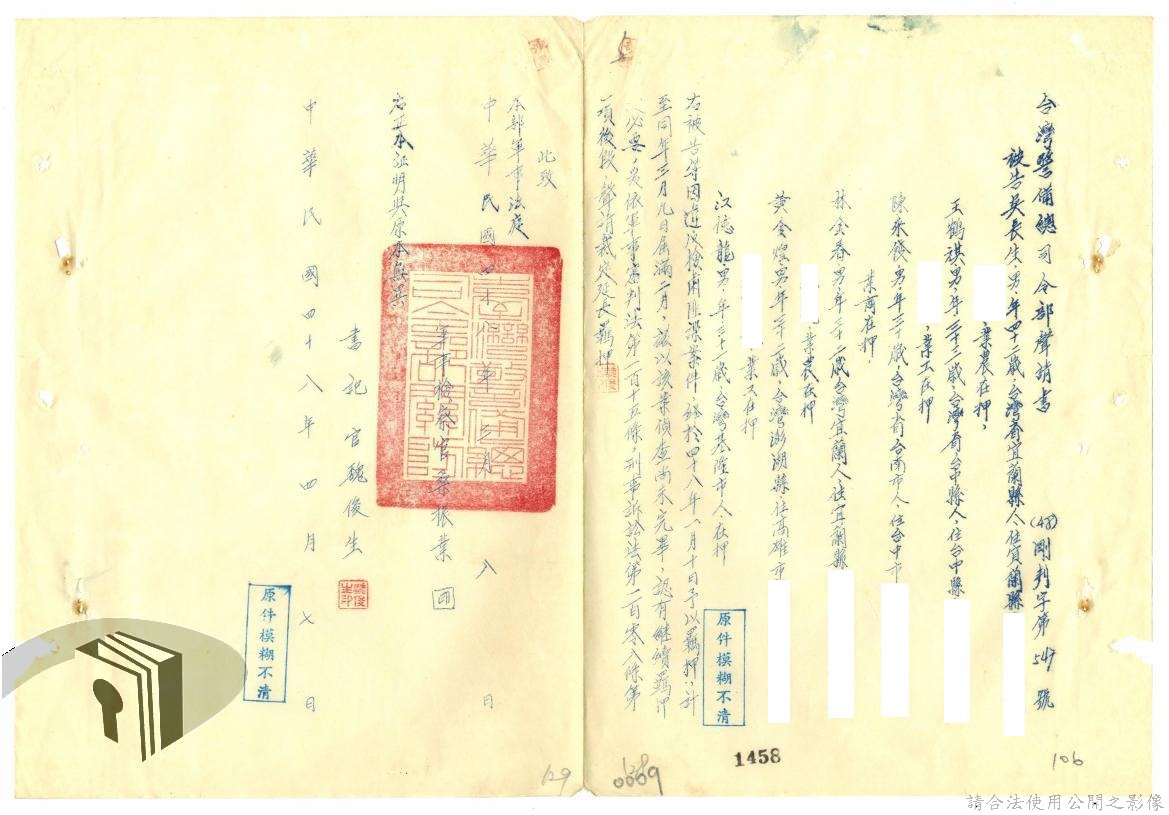 台灣警備總司令部聲請書
(48)剛判字第547號
被告吳長生，男，年四十二歲，台灣省宜蘭縣人，住宜蘭縣
，業農在押，
王鶴祺男，年三十三歲，台灣省台中縣人，住台中縣
，業工在押
陳采發男，年三十歲，台灣省台南市人，住台中市
業商在押
林金春男，年三十二歲台灣宜蘭人，住宜蘭縣
，業農在押
黃金煌男，年三十二歲，台灣澎湖縣，住高雄市
業工在押
江德龍，男，年三十一歲，台灣基隆市人，在押
右被告等因違反檢肅匪諜案件，經於四十八年一月十日予以羈押，計
至同年三月九日屆滿二月，茲以該案偵查尚未完畢，認有繼續羈押
必要，爰依軍事審判法第一百十五條，刑事訴訟法第一百零八條第
一項後段，聲請裁定延長羈押
此致
本部軍事法庭
中華民國四十八年三月 日
軍事檢察官 振業
右正本証明與原本無異
書記官 魏俊生
魏俊生印
中華民國四十八年四月七日
原件模糊不清
原件模糊不清
1458
106
129
請合法使用公開之影像